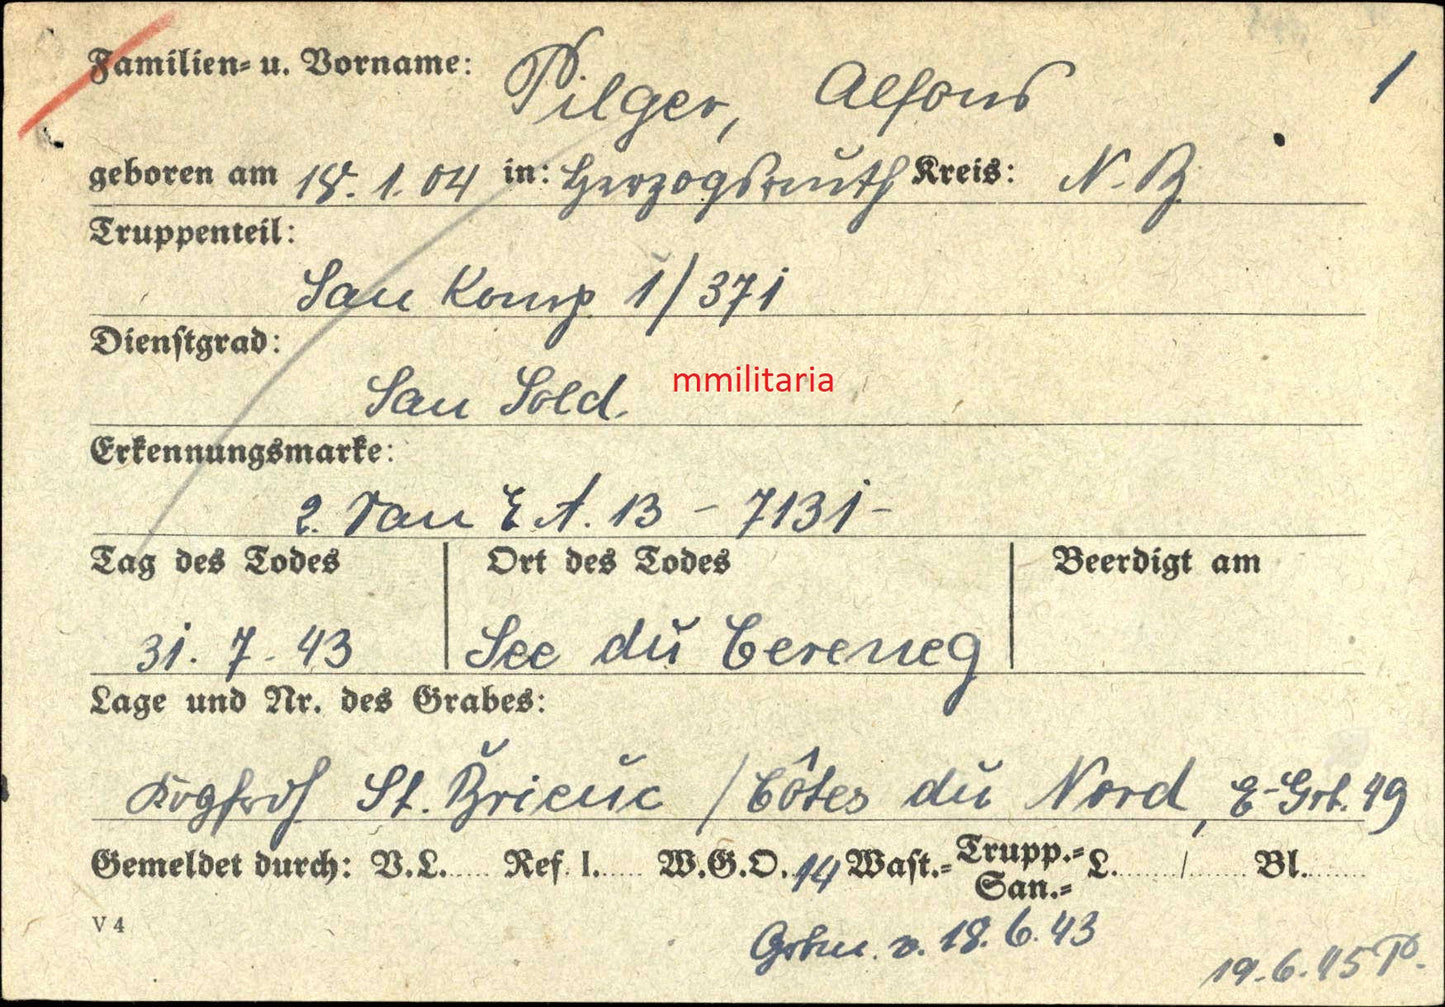 Familien= u. Vorname: Pilger, Alfons 1
geboren am 18.1.04 in: Herzogsreuth Kreis: N.B.
Truppenteil:
San Komp 1/371
Dienstgrad:
San Sold. mmilitaria
Erkennungsmarke:
2. San E.A. 13 - 7131 -
Tag des Todes Ort des Todes Beerdigt am
31.7.43 See du
Lage und Nr. des Grabes:
St. Brieuc / Côtes du Nord, E-Grb. 49
Gemeldet durch: V.L. Ref. I. W.G.O. 14 Wast.= Trupp.= San.= L. / Bl.
V 4
v. 18.6.43
19.6.45 P.